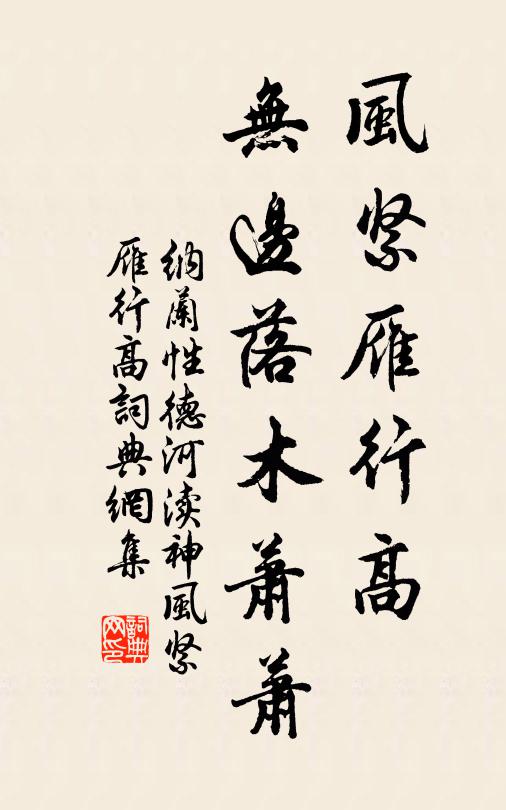 風緊雁行高
無邊落木蕭蕭
納蘭性德河渎神風緊
雁行高詞典網集
詞典
网印